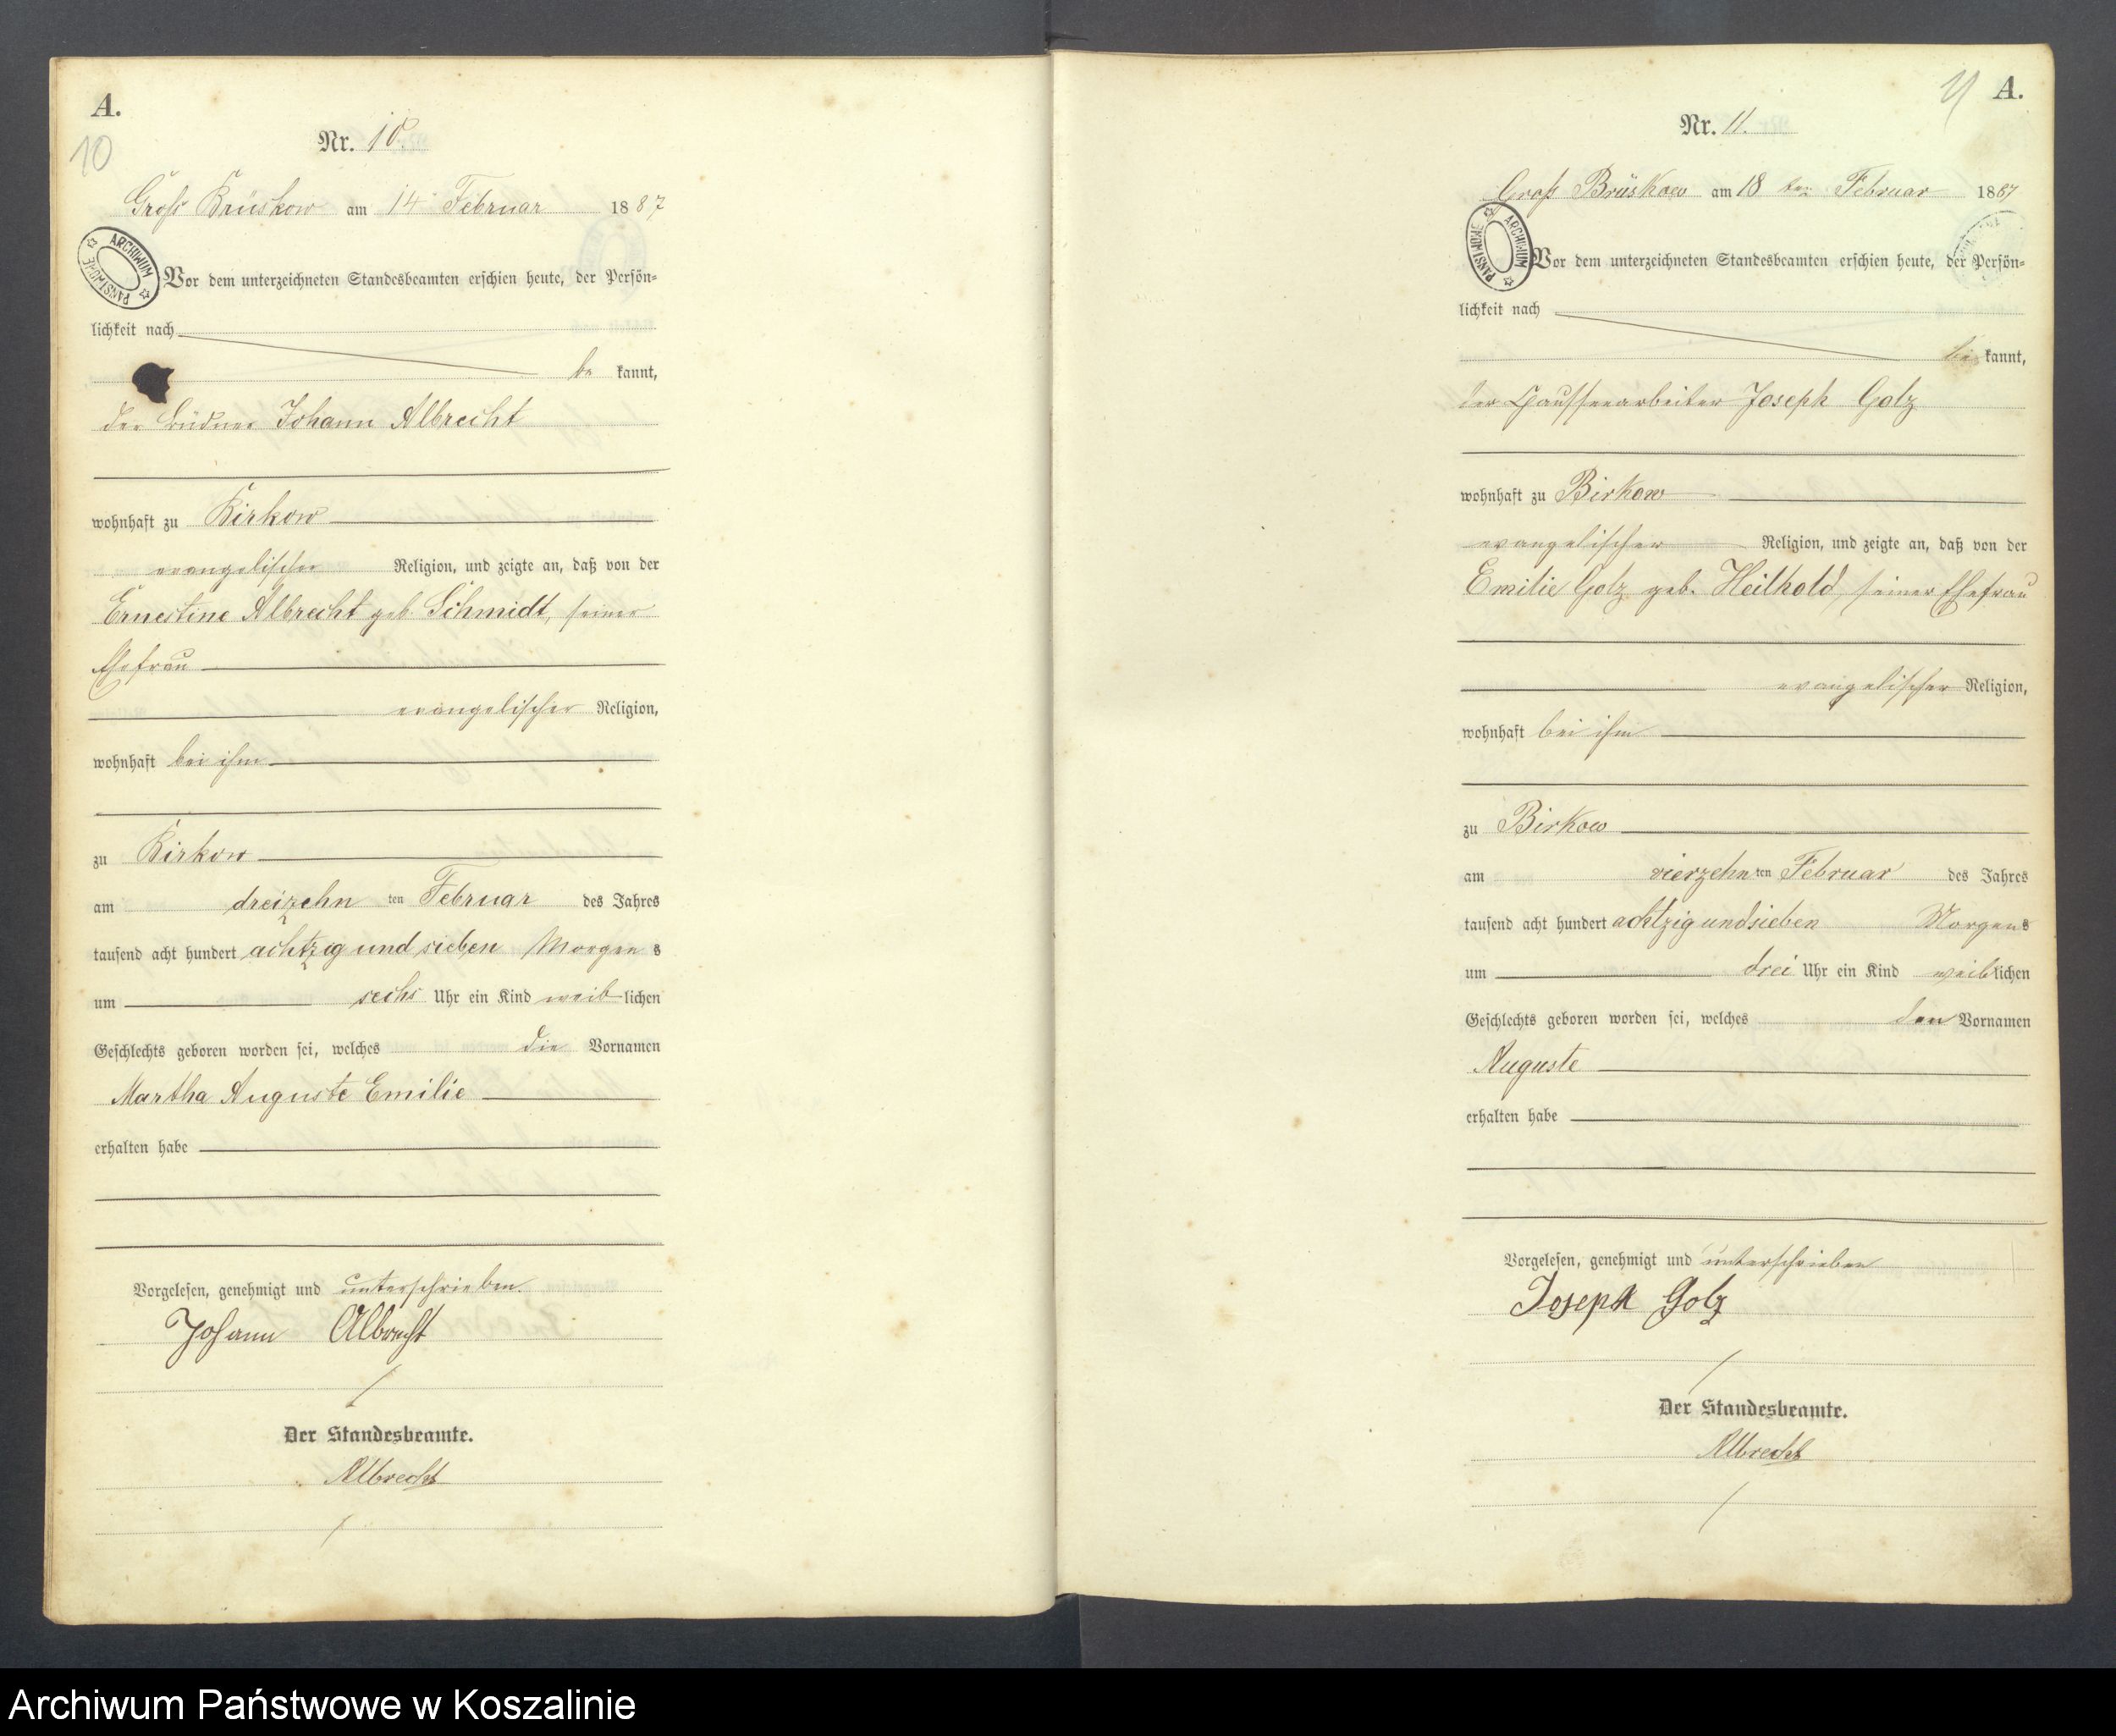 A.
10
Nr. 10.
Groß Brüskow am 14 Februar 1887
ARCHIWUM PAŃSTWOWE
Vor dem unterzeichneten Standesbeamten erschien heute, der Persön-
lichkeit nach
be kannt,
der Büdner Johann Albrecht
wohnhaft zu Birkow
evangelischer Religion, und zeigte an, daß von der
Ernestine Albrecht geb. Schmidt, seiner
Ehefrau
evangelischer Religion,
wohnhaft bei ihm
zu Birkow
am dreizehn ten Februar des Jahres
tausend acht hundert achtzig und sieben Morgen s
um sechs Uhr ein Kind weib lichen
Geschlechts geboren worden sei, welches die Vornamen
Martha Auguste Emilie
erhalten habe
Vorgelesen, genehmigt und unterschrieben.
Johann Albrecht
Der Standesbeamte.
Albrecht
11 A.
Nr. 11.
Groß Brüskow am 18 ten Februar 1887
ARCHIWUM PAŃSTWOWE
Vor dem unterzeichneten Standesbeamten erschien heute, der Persön-
lichkeit nach
be kannt,
der Chausseearbeiter Joseph Golz
wohnhaft zu Birkow
evangelischer Religion, und zeigte an, daß von der
Emilie Golz geb. Heilhold, seiner Ehefrau
evangelischer Religion,
wohnhaft bei ihm
zu Birkow
am vierzehn ten Februar des Jahres
tausend acht hundert achtzig und sieben Morgens
um drei Uhr ein Kind weiblichen
Geschlechts geboren worden sei, welches den Vornamen
Auguste
erhalten habe
Vorgelesen, genehmigt und unterschrieben
Joseph Golz
Der Standesbeamte.
Albrecht
Archiwum Państwowe w Koszalinie